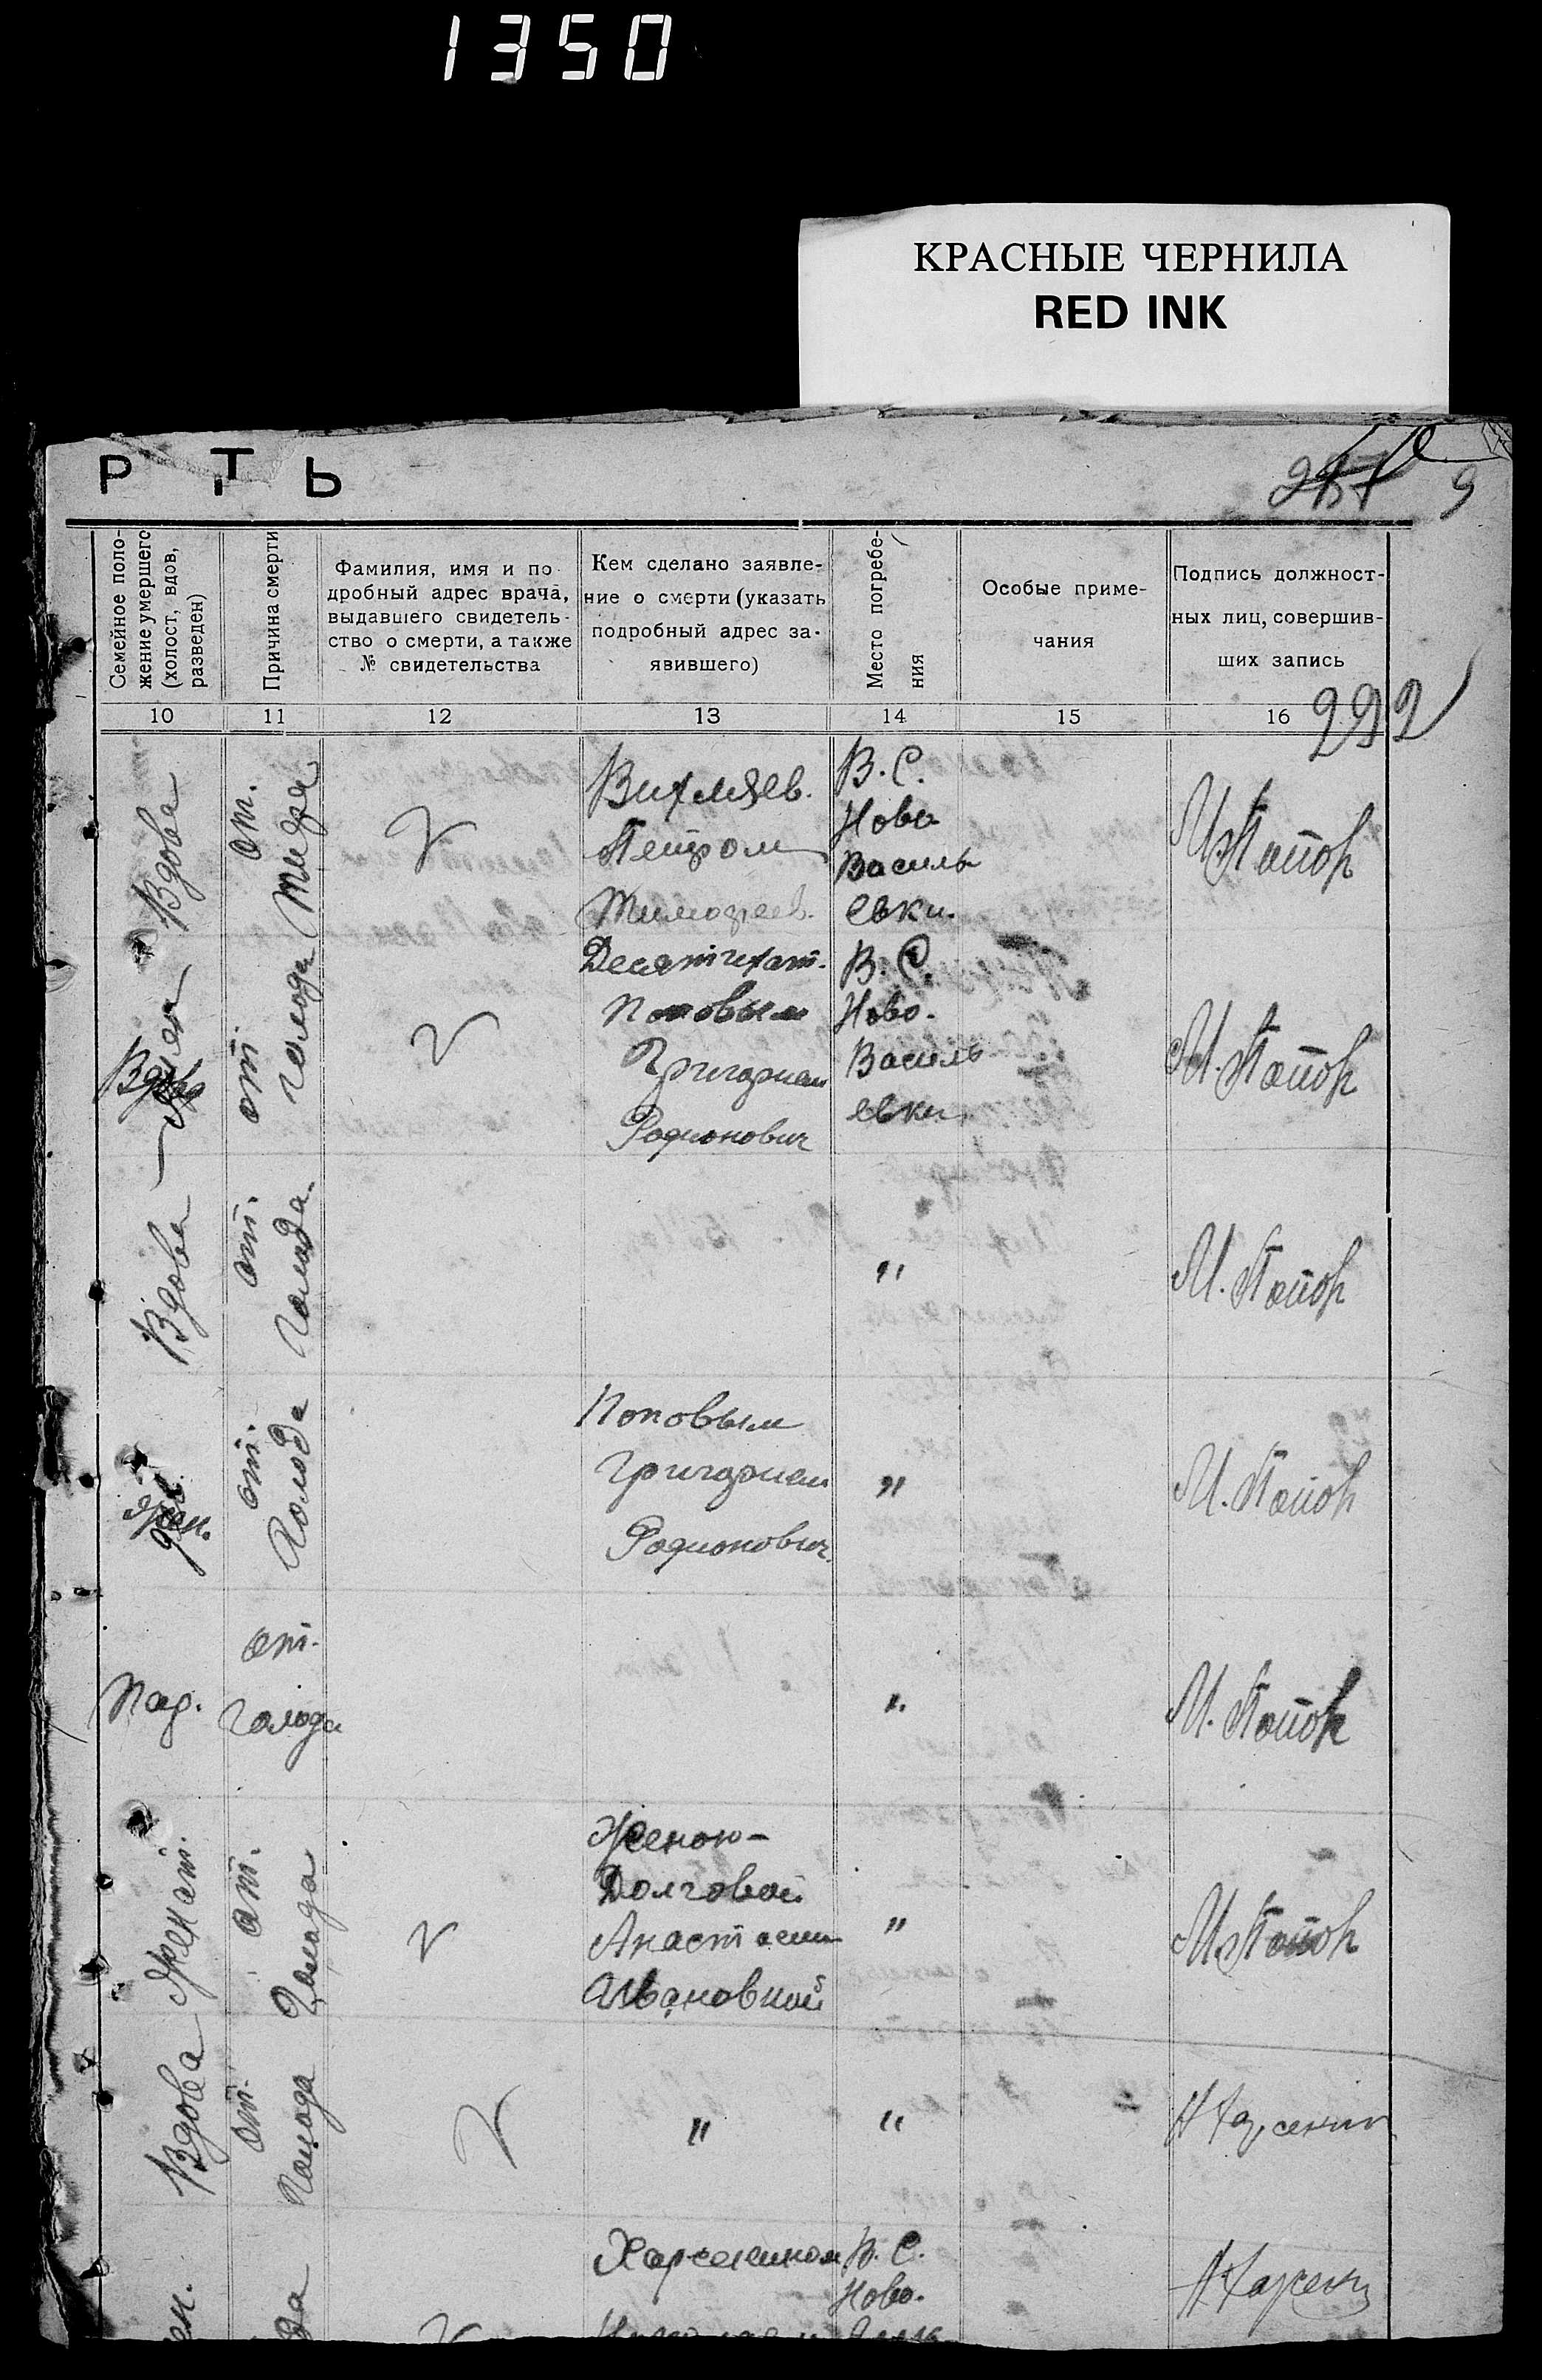 1350
КРАСНЫЕ ЧЕРНИЛА
RED INK
РТЬ
9
Семейное поло-
жение умершего
(холост, вдов,
разведен)
Причина смерти
Фамилия, имя и по
дробный адрес врача,
выдавшего свидетель-
ство о смерти, а также
№ свидетельства
Кем сделано заявле-
ние о смерти (указать
подробный адрес за-
явившего)
Место погребе-
ния
Особые приме-
чания
Подпись должност-
ных лиц, совершив-
ших запись
10 11 12 13 14 15 16
292
Вдова
от.
Тифа
Вихляев.
Петром
Тимофеев.
В. С.
Ново
Василь
евки.
Вдова
от
голода
Поповым
Григорием
Родионович
В. С.
Ново.
Василь
евки
Вдова
от.
голода.
"
от.
Голода
Поповым
Григорием
Родионович.
"
от.
голода
"
Женат.
от.
Голода
Женою-
Долговой
Анастасии
Ивановной
"
Вдова
от.
голода
"
"
Харсеником
В. С.
Ново.